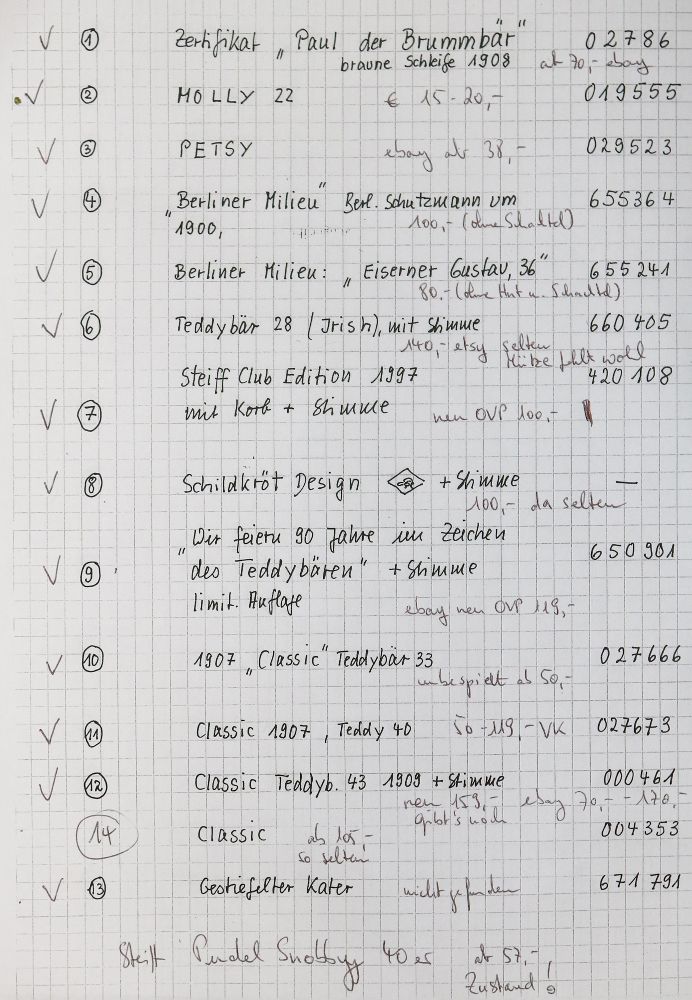 ✓ ① Zertifikat „Paul der Brummbär" 02786
braune Schleife 1908 ab 70,- ebay
✓ ② MOLLY 22 € 15-20,- 019555
✓ ③ PETSY ebay ab 38,- 029523
✓ ④ „Berliner Milieu" Berl. Schutzmann um 655364
1900, 100,- (ohne Schachtel)
✓ ⑤ Berliner Milieu: „Eiserner Gustav, 36" 655241
80,- (ohne Hut u. Schachtel)
✓ ⑥ Teddybär 28 (Irish), mit Stimme 660405
140,- etsy selten
Mütze fehlt wohl
Steiff Club Edition 1997 420108
✓ ⑦ mit Korb + Stimme neu OVP 100,-
✓ ⑧ Schildkröt Design + Stimme —
100,- da selten
„Wir feiern 90 Jahre im Zeichen
✓ ⑨ des Teddybären" + Stimme 650901
limit. Auflage ebay neu OVP 119,-
✓ ⑩ 1907 „Classic" Teddybär 33 027666
unbespielt ab 50,-
✓ ⑪ Classic 1907, Teddy 40 50-119,- VK 027673
✓ ⑫ Classic Teddyb. 43 1909 + Stimme 000461
neu 159,- ebay 70,- - 170,-
gibt's noch
⑭ Classic ab 105,- 004353
so selten
✓ ⑬ Gestiefelter Kater nicht gefunden 671791
Steiff Pudel Snobby 40er ab 57,-,
Zustand!